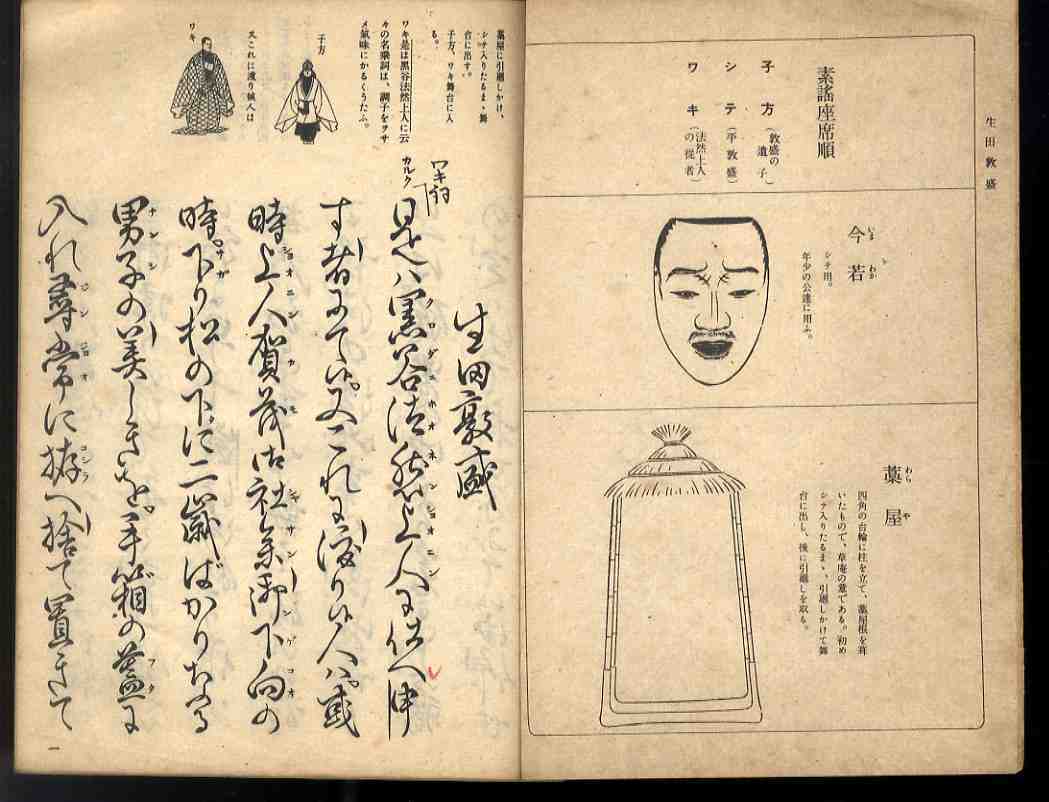 生田敦盛
素謡座席順
子方(敦盛の遺子)
シテ(平敦盛)
ワキ(法然上人の従者)
今若
いまわか
シテ用。
年少の公達に用ふ。
藁屋
わらや
四角の台輪に柱を立て、藁屋根を葺
いたもので、草庵の意である。初め
シテ入りたるまゝ、引廻しかけて舞
台に出し、後に引廻しを取る。
藁屋に引廻しかけ、
シテ入りたるまゝ舞
台に出す。
子方、ワキ舞台に入
る。
ワキ是は黒谷法然上人に云
々の名乗詞は、調子をヲサ
メ気味にかるくうたふ。
子方
又これに渡り候人は
ワキ
生田敦盛
ワキ詞
カルク
是は黒谷法然上人に仕へ申
クロダニホオネンショオニン
す者にて候。又これに渡り候人は。或
時上人賀茂の御社参御下向の
ショオニンカモシャサンゲコオ
時。下り松の下に二歳ばかりなる
サガ
男子の美しきを。手箱の蓋に
ナンシフタ
入れ尋常に拵へ捨て置きて
ジンジョオコシラ
一